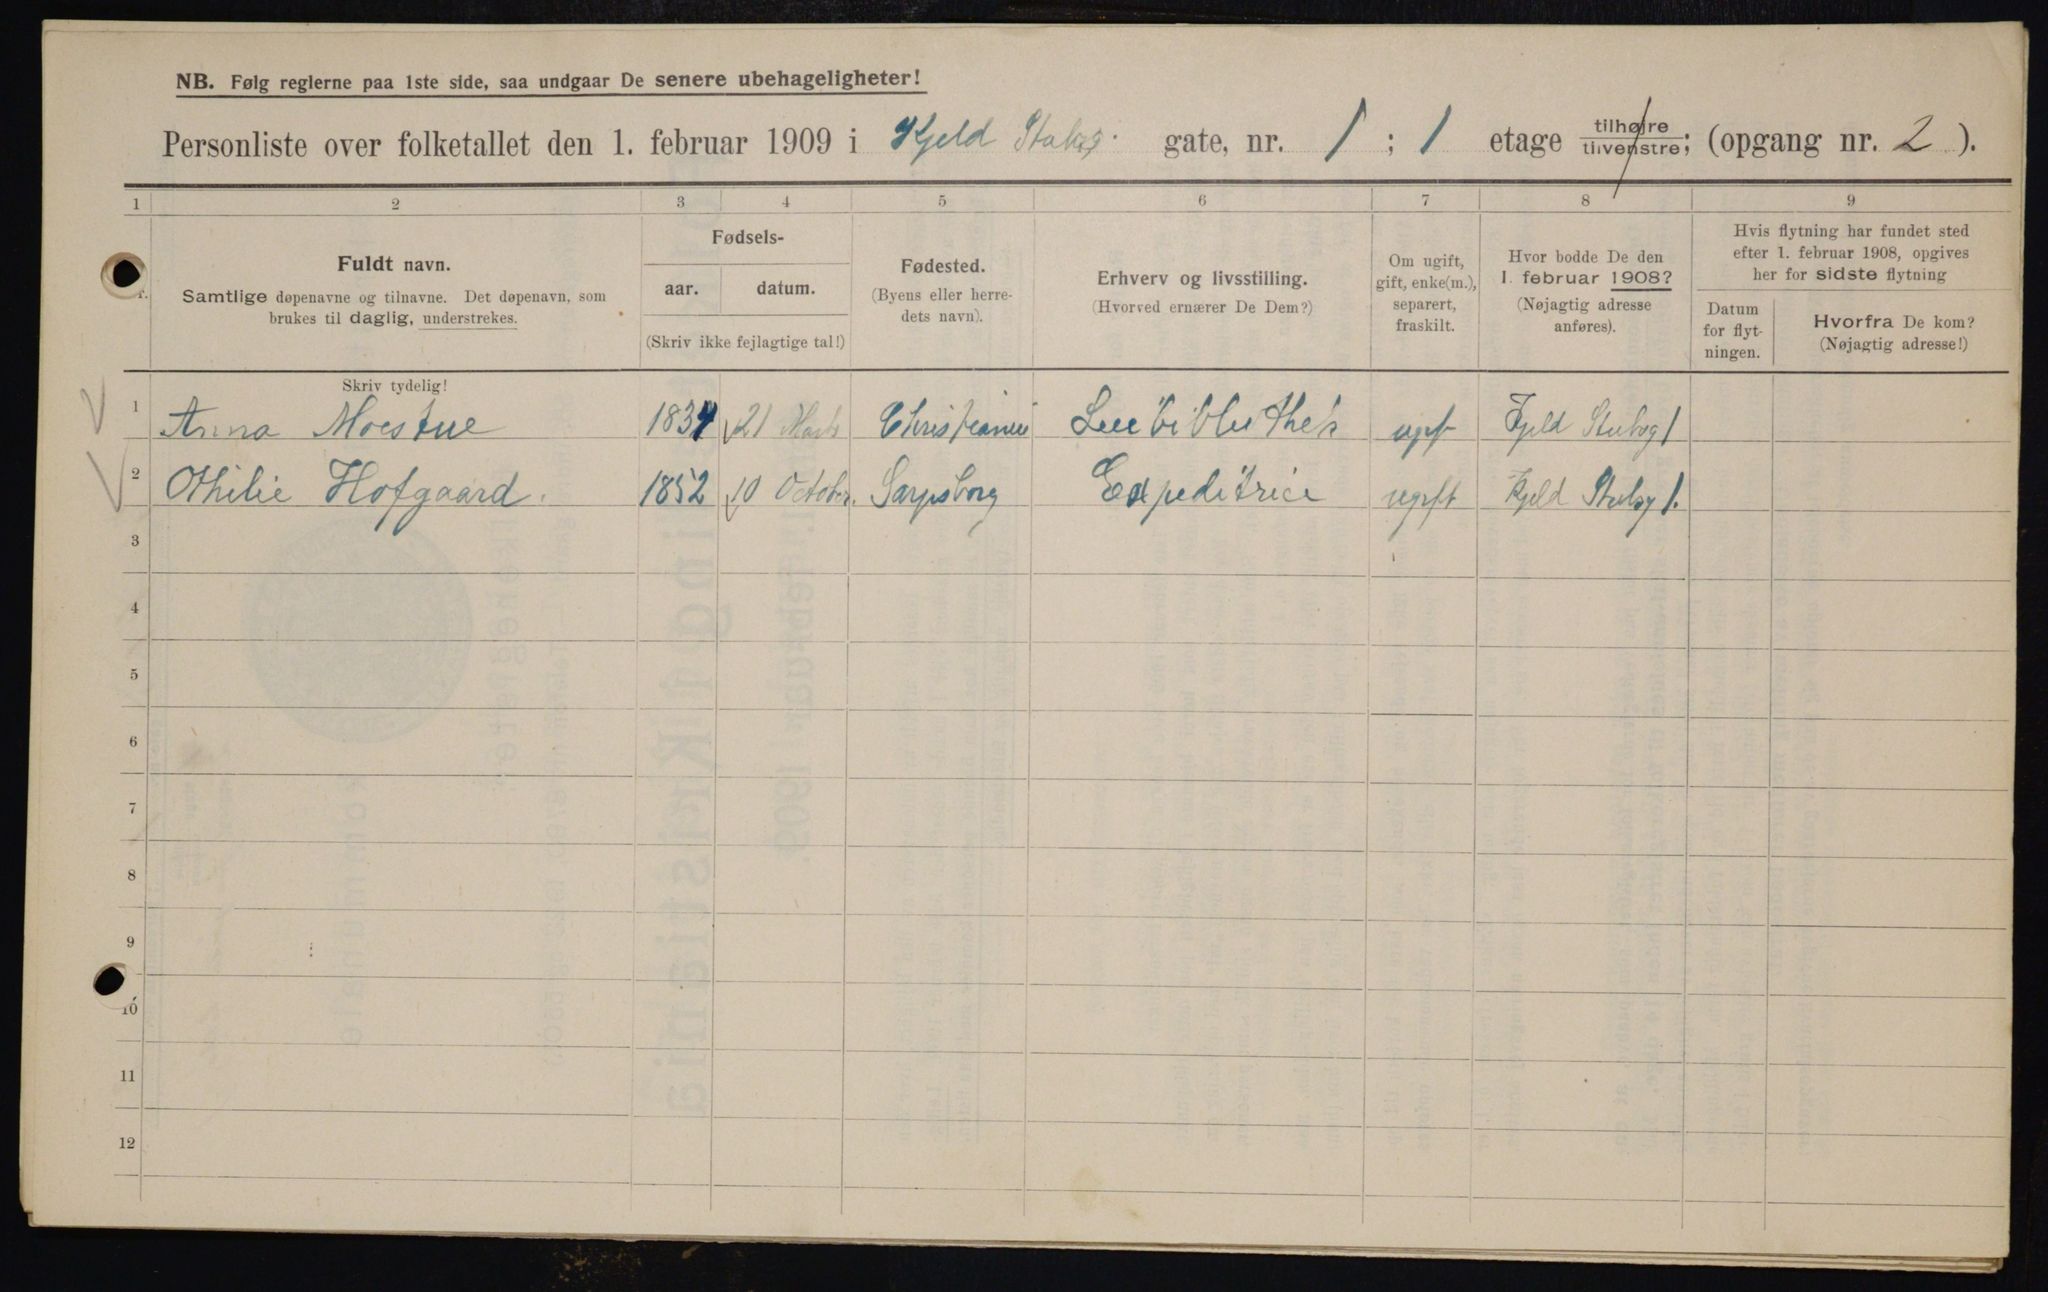 NB. Følg reglerne paa 1ste side, saa undgaar De senere ubehageligheter!
Personliste over folketallet den 1. februar 1909 i Kjeld Stubs gate, nr. 1 ; 1 etage tilhøjre tilvenstre; (opgang nr. 2 ).
1 2 3 4 5 6 7 8 9
Fuldt navn.
Samtlige døpenavne og tilnavne. Det døpenavn, som
brukes til daglig, understrekes.
Fødsels-
aar. datum.
(Skriv ikke fejlagtige tal!)
Fødested.
(Byens eller herre-
dets navn).
Erhverv og livsstilling.
(Hvorved ernærer De Dem?)
Om ugift,
gift, enke(m.),
separert,
fraskilt.
Hvor bodde De den
1. februar 1908?
(Nøjagtig adresse
anføres).
Hvis flytning har fundet sted
efter 1. februar 1908, opgives
her for sidste flytning
Datum
for flyt-
ningen.
Hvorfra De kom?
(Nøjagtig adresse!)
Skriv tydelig!
1 Anna Moestue 1834 21 Marts Christiania ugift Kjeld Stubsg 1
2 Othilie Hofgaard. 1852 10 October. Sarpsborg Expeditrice ugift Kjeld Stubsg 1.
3
4
5
6
7
8
9
10
11
12